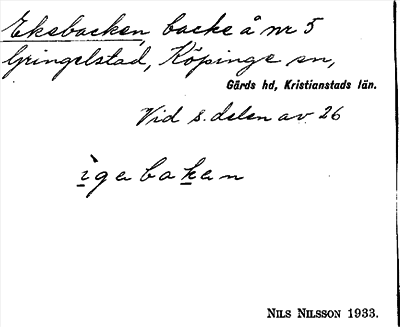 Ekebacken, backe å nr 5
Gringelstad, Köpinge sn,
Gärds hd, Kristianstads län.
Vid s. delen av 26
ìgabakan
NILS NILSSON 1933.